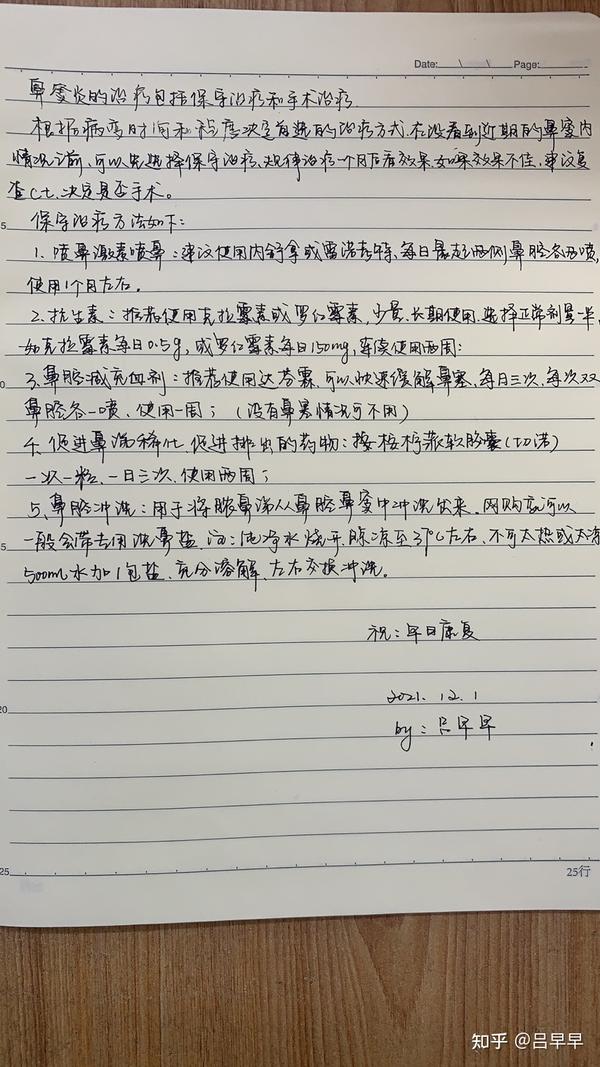 Date: \ \ Page:
鼻窦炎的治疗包括保守治疗和手术治疗.
根据病变时间和程度决定首选的治疗方式.在没看到近期的鼻窦内
情况之前,可以先选择保守治疗.规律治疗一个月后看效果.如果效果不佳,建议复
查Ct.决定是否手术。
5
保守治疗方法如下:
1. 喷鼻激素喷鼻:建议使用内舒拿或雷诺考特、每日晨起两侧鼻腔各两喷,
使用1个月左右.
2. 抗生素:推荐使用克拉霉素或罗红霉素,少量、长期使用.选择正常剂量一半,
如克拉霉素每日0.5g,或罗红霉素每日150mg,连续使用两周:
0
3. 鼻腔减充血剂:推荐使用达芬霖、可以快速缓解鼻塞,每日三次,每次双
鼻腔各一喷、使用一周;(没有鼻塞情况可不用)
4. 促进鼻涕稀化、促进排出的药物:桉柠蒎软胶囊(切诺)
一次一粒、一日三次、使用两周;
5、鼻腔冲洗:用于将脓鼻涕从鼻腔鼻窦中冲洗出来、网购就可以
5
一般会带专用洗鼻盐、油:纯净水烧开.晾凉至37℃左右、不可太热或太凉
500ml水加1包盐、充分溶解、左右交换冲洗。
祝:早日康复
20
2021. 12. 1
by:吕早早
25
25行
知乎 @吕早早